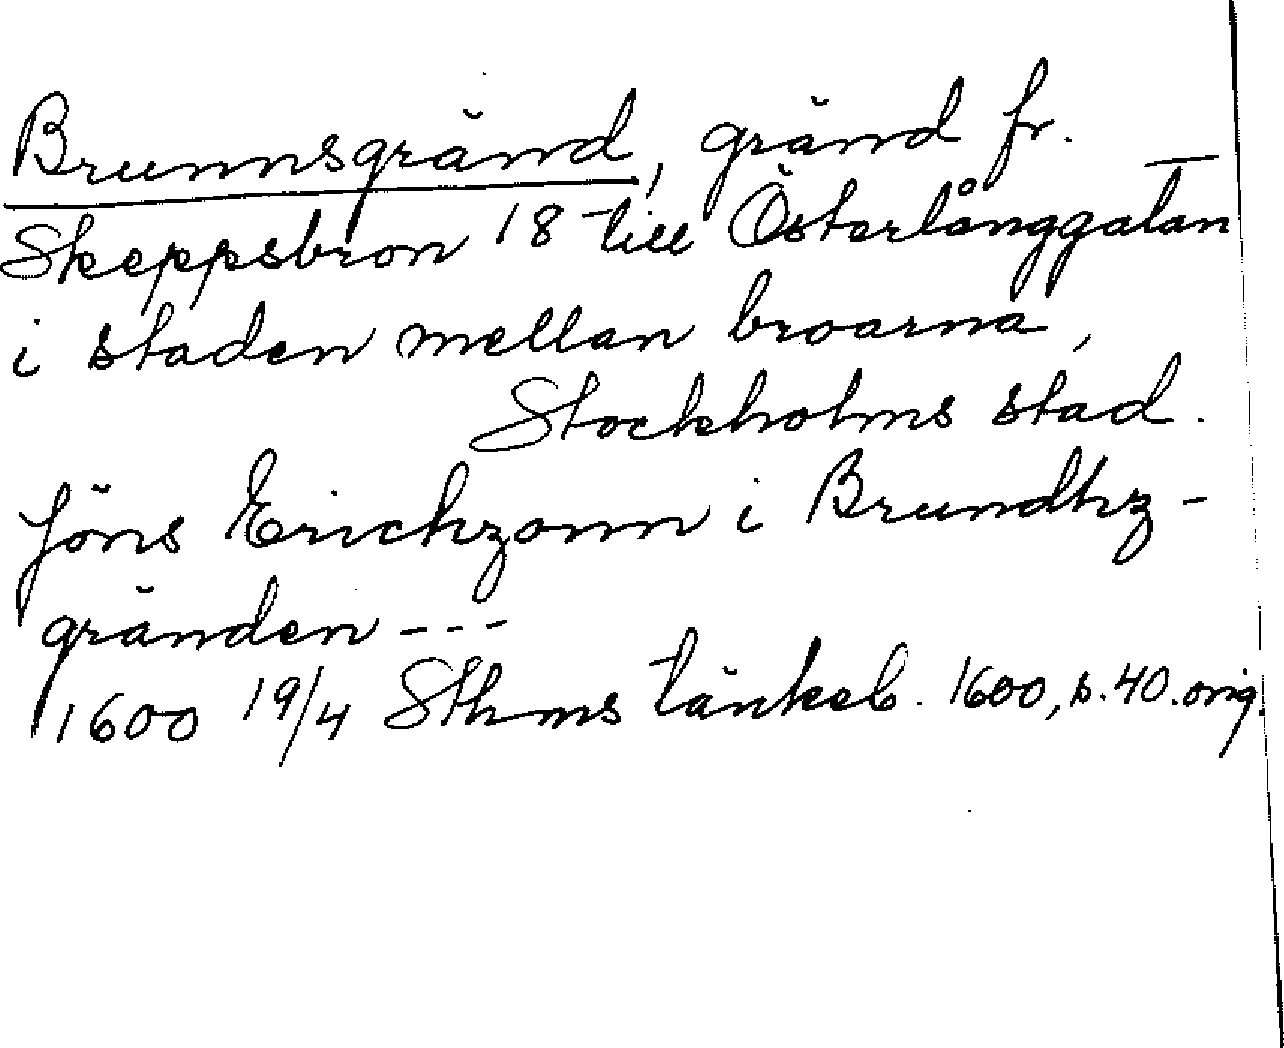 Brunnsgränd, gränd fr.
Skeppsbron 18 till Österlånggatan
i staden mellan broarna,
Stockholms stad.
Jöns Erichzonn i Brundhz-
gränden - - -
1600 19/4 Sthms tänkeb. 1600, s. 40. orig.